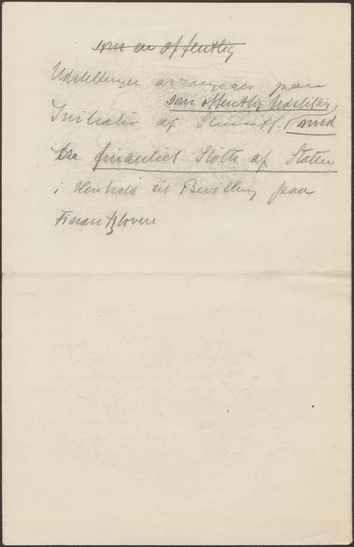 som en offentlig
Udstillingen arrangeres paa
som offentlig Udstilling
Initiativ af (med
finansiel Støtte af Staten
i Henhold til Bevilling paa
Finantzloven